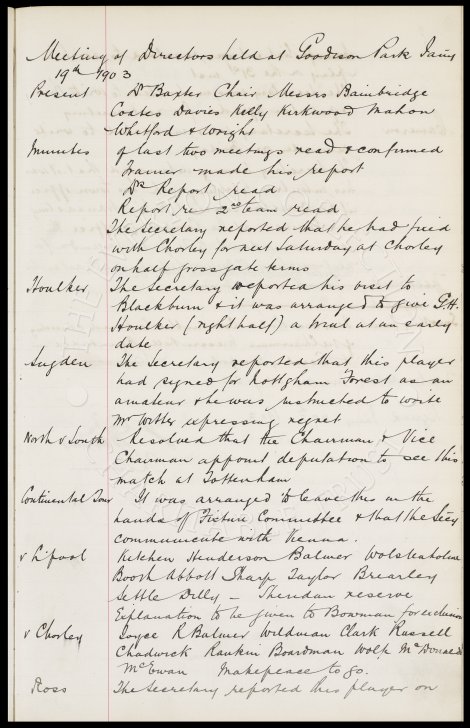 Meeting of Directors held at Goodison Park Jany
19th 1903
Present Dr Baxter Chair Messrs Bainbridge
Coates Davies Kelly Kirkwood Mahon
Whitford & Wright
Minutes of last two meetings read & confirmed
Trainer made his report
Drs Report read
Report re 2nd team read
The Secretary reported that he had fixed
with Chorley for next Saturday at Chorley
on half gross gate terms
Houlker The Secretary reported his visit to
Blackburn & it was arranged to give
Houlker (right half) a trial at an early
date
Sugden The Secretary reported that this player
had signed for Nottgham Forest as an
amateur & he was instructed to write
Mr expressing regret
North v South Resolved that the Chairman & Vice
Chairman appoint deputation to see this
match at Tottenham
Continental Tour It was arranged to leave this in the
hands of Fixture Committee & that the Secy
communicate with Vienna.
v L'pool Kitchen Henderson Balmer Wolstenholme
Booth Abbott Sharp Taylor Brearley
Settle Dilly – Sheridan reserve
Explanation to be given to Bowman for exclusion
v Chorley Joyce R Balmer Wildman Clark Russell
Chadwick Rankin Boardman Wolf McDonald
McEwan Makepeace to go.
Ross The Secretary reported this player on